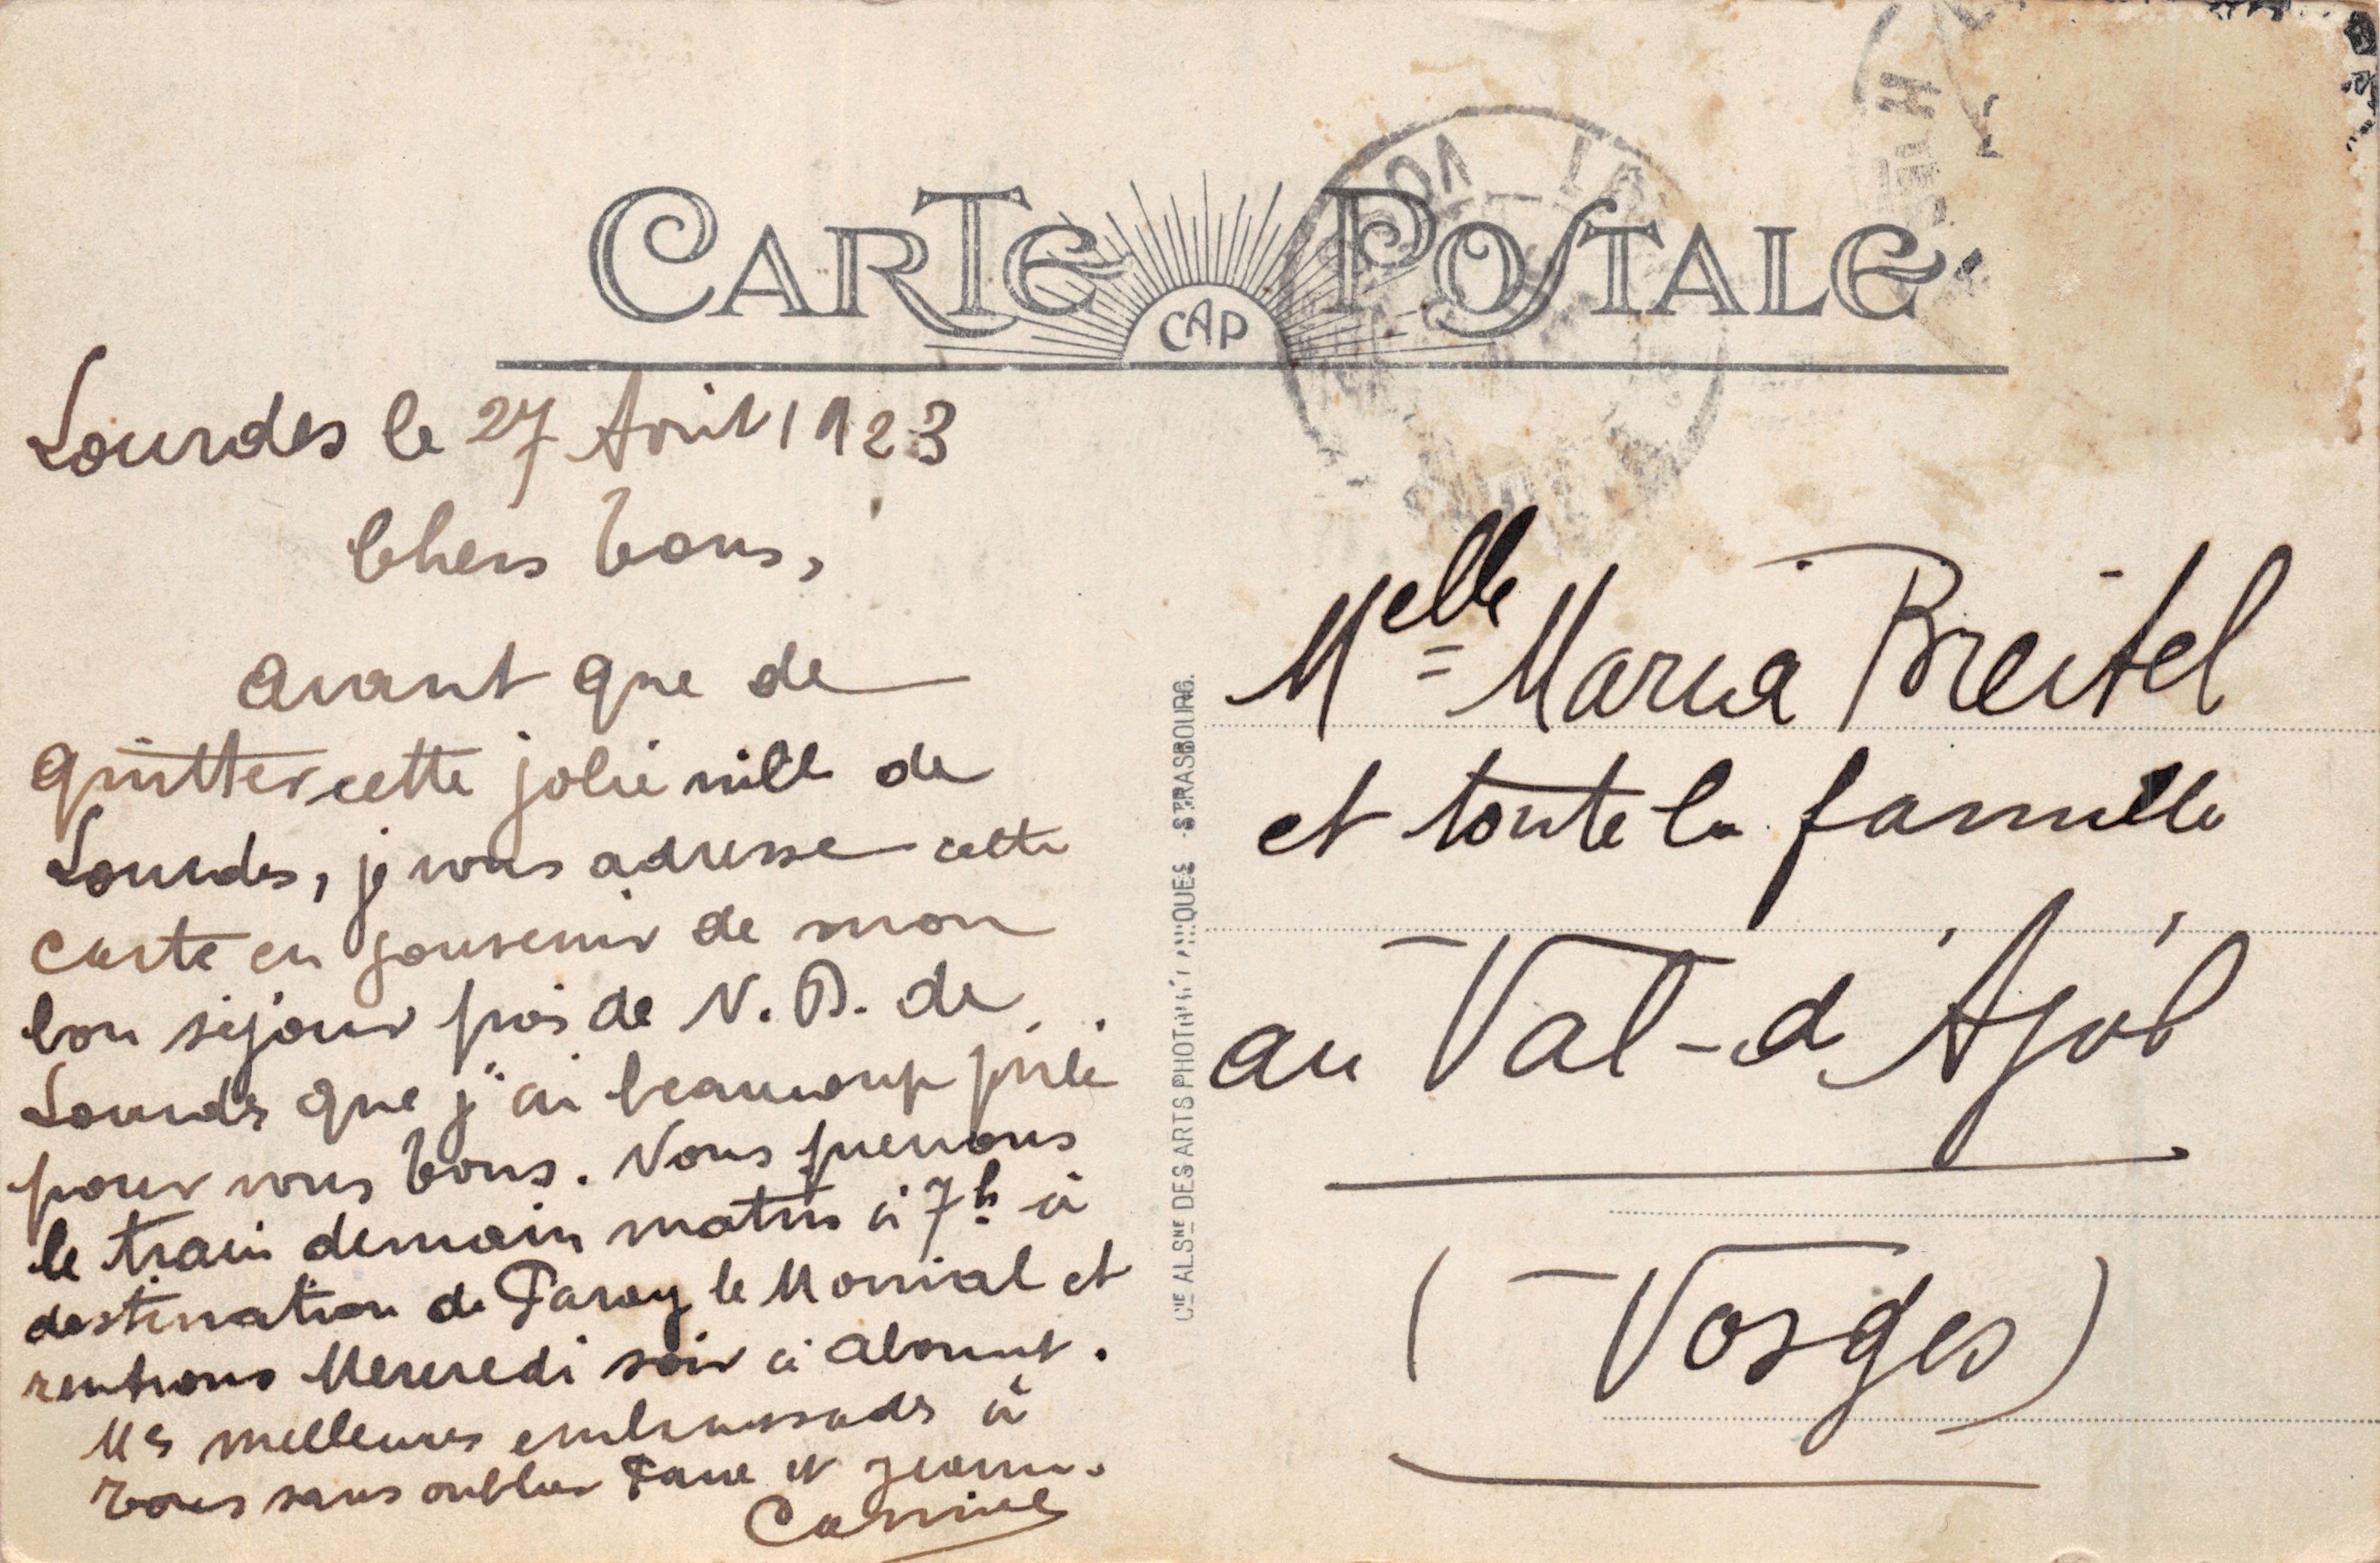 CARTE POSTALE
CAP
Lourdes le 27 Août 1923
Chers tous,
avant que de
quitter cette jolie ville de
Lourdes, je vous adresse cette
carte en souvenir de mon
bon séjour près de N. D. de
Lourdes que j'ai beaucoup prié
pour vous tous. Nous prenons
le train demain matin à 7h à
destination de Paray le Monial et
rentrons Mercredi soir à
Mes meilleures embrassades à
tous sans oublier et
Melle Maria Breitel
et toute la famille
au Val-d'Ajol
(Vosges)
CIE ALSNE DES ARTS PHOTOMÉCANIQUES - STRASBOURG.